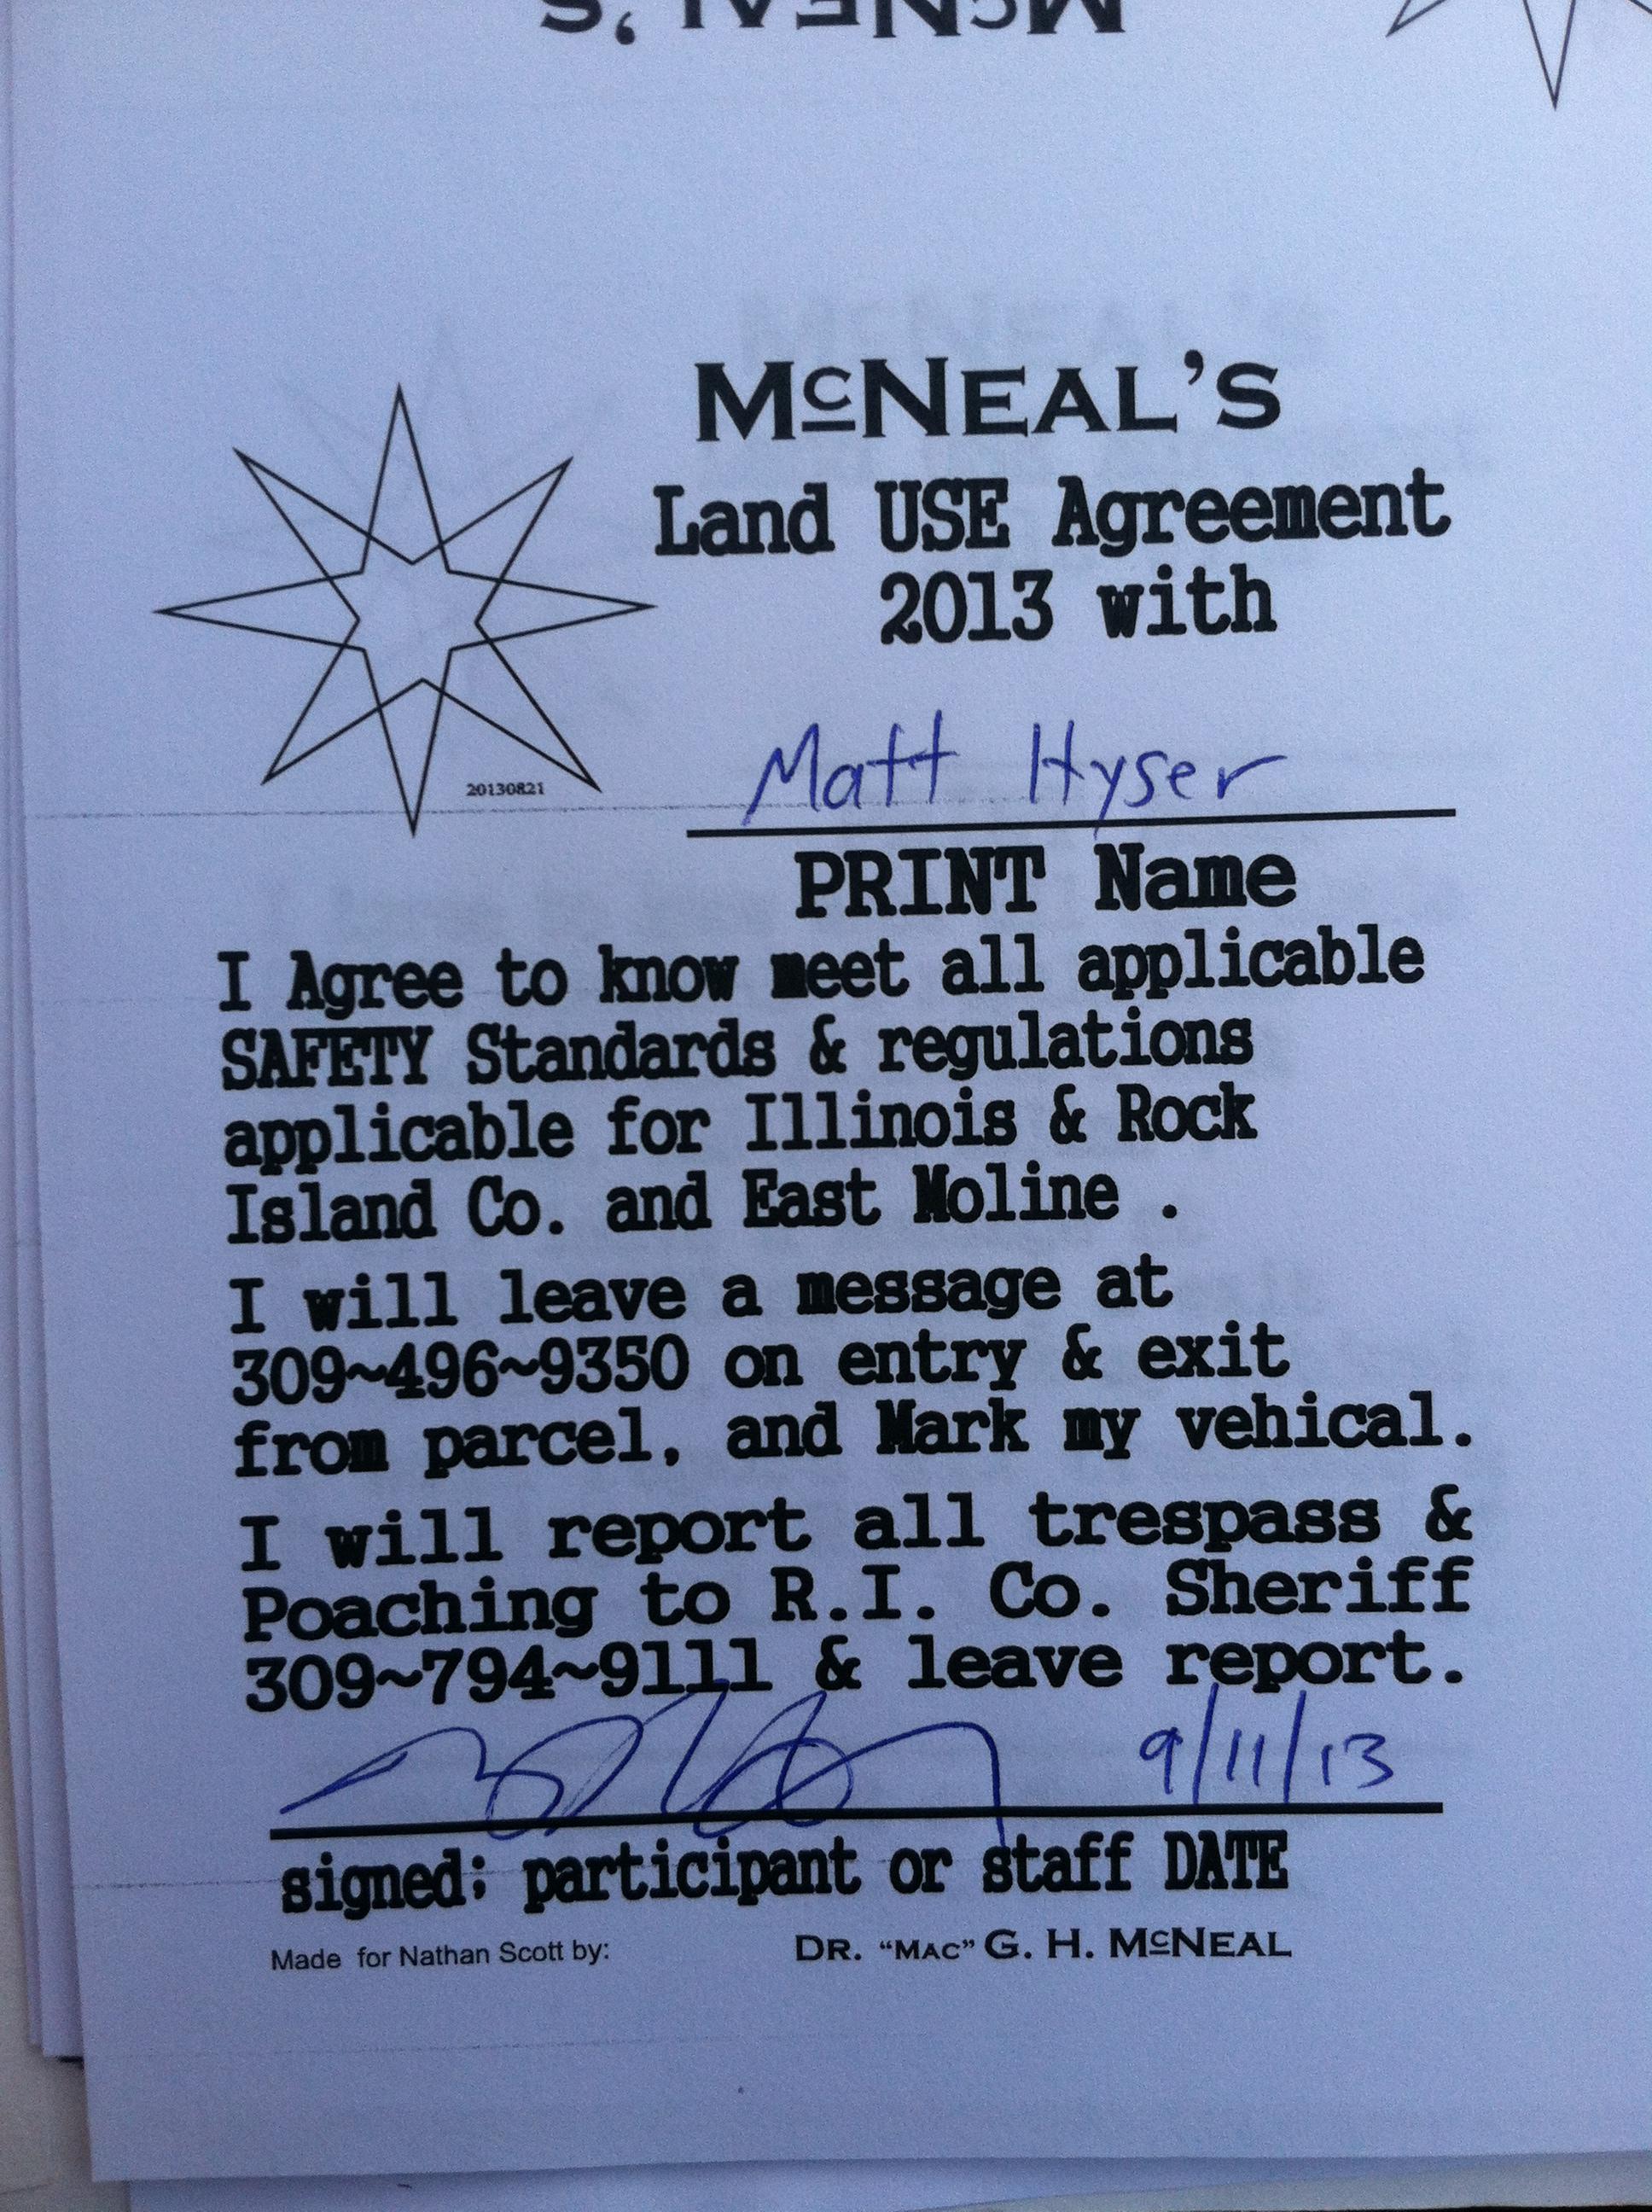 McNEAL'S
McNEAL'S
Land USE Agreement
2013 with
Matt Hyser
20130821
PRINT Name
I Agree to know meet all applicable
SAFETY Standards & regulations
applicable for Illinois & Rock
Island Co. and East Moline .
I will leave a message at
309~496~9350 on entry & exit
from parcel, and Mark my vehical.
I will report all trespass &
Poaching to R.I. Co. Sheriff
309~794~9111 & leave report.
9/11/13
signed; participant or staff DATE
Made for Nathan Scott by: DR. “MAC” G. H. McNEAL